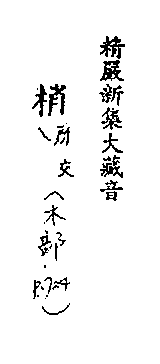 精嚴新集大藏音
梢、所交(木部.